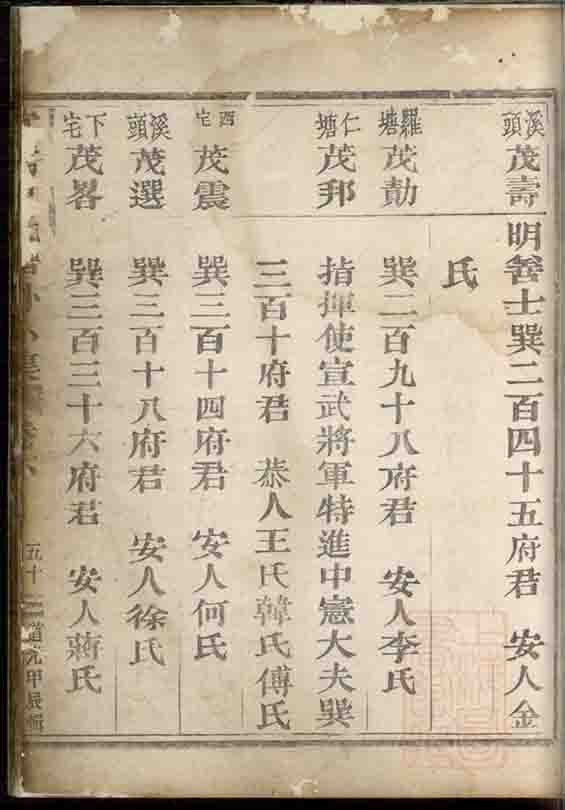 溪頭 茂壽 明善士巽二百四十五府君 安人金
氏
羅塘 茂勣 巽二百九十八府君 安人李氏
仁塘 茂邦 指揮使宣武將軍特進中憲大夫巽
三百十府君 恭人王氏韓氏傅氏
西宅 茂震 巽三百十四府君 安人何氏
溪頭 茂選 巽三百十八府君 安人徐氏
下宅 茂畧 巽三百三十六府君 安人蔣氏
五十二 道光甲辰輯